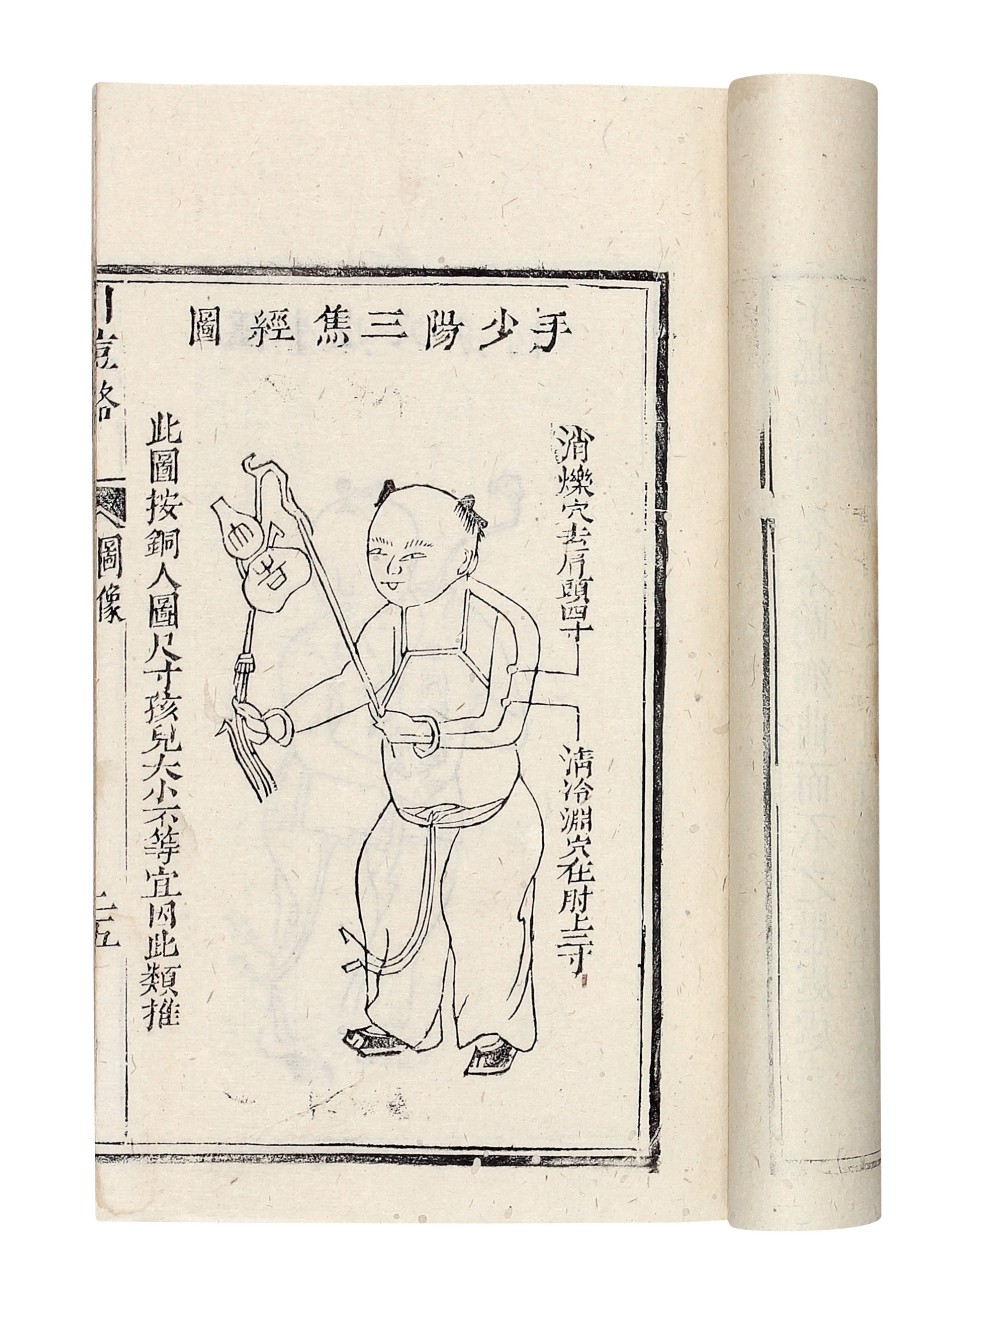 手少陽三焦經圖
消爍穴去肩頭四寸
清冷淵穴在肘上三寸
此圖按銅人圖尺寸孩兒大小不等宜因此類推
圖像